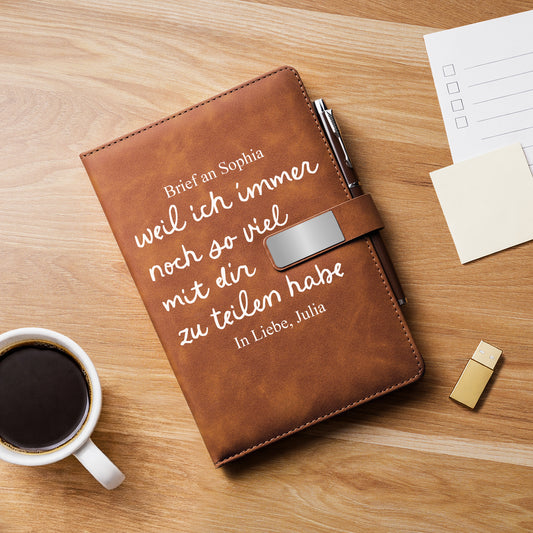 Brief an Sophia
weil ich immer
noch so viel
mit dir
zu teilen habe
In Liebe, Julia